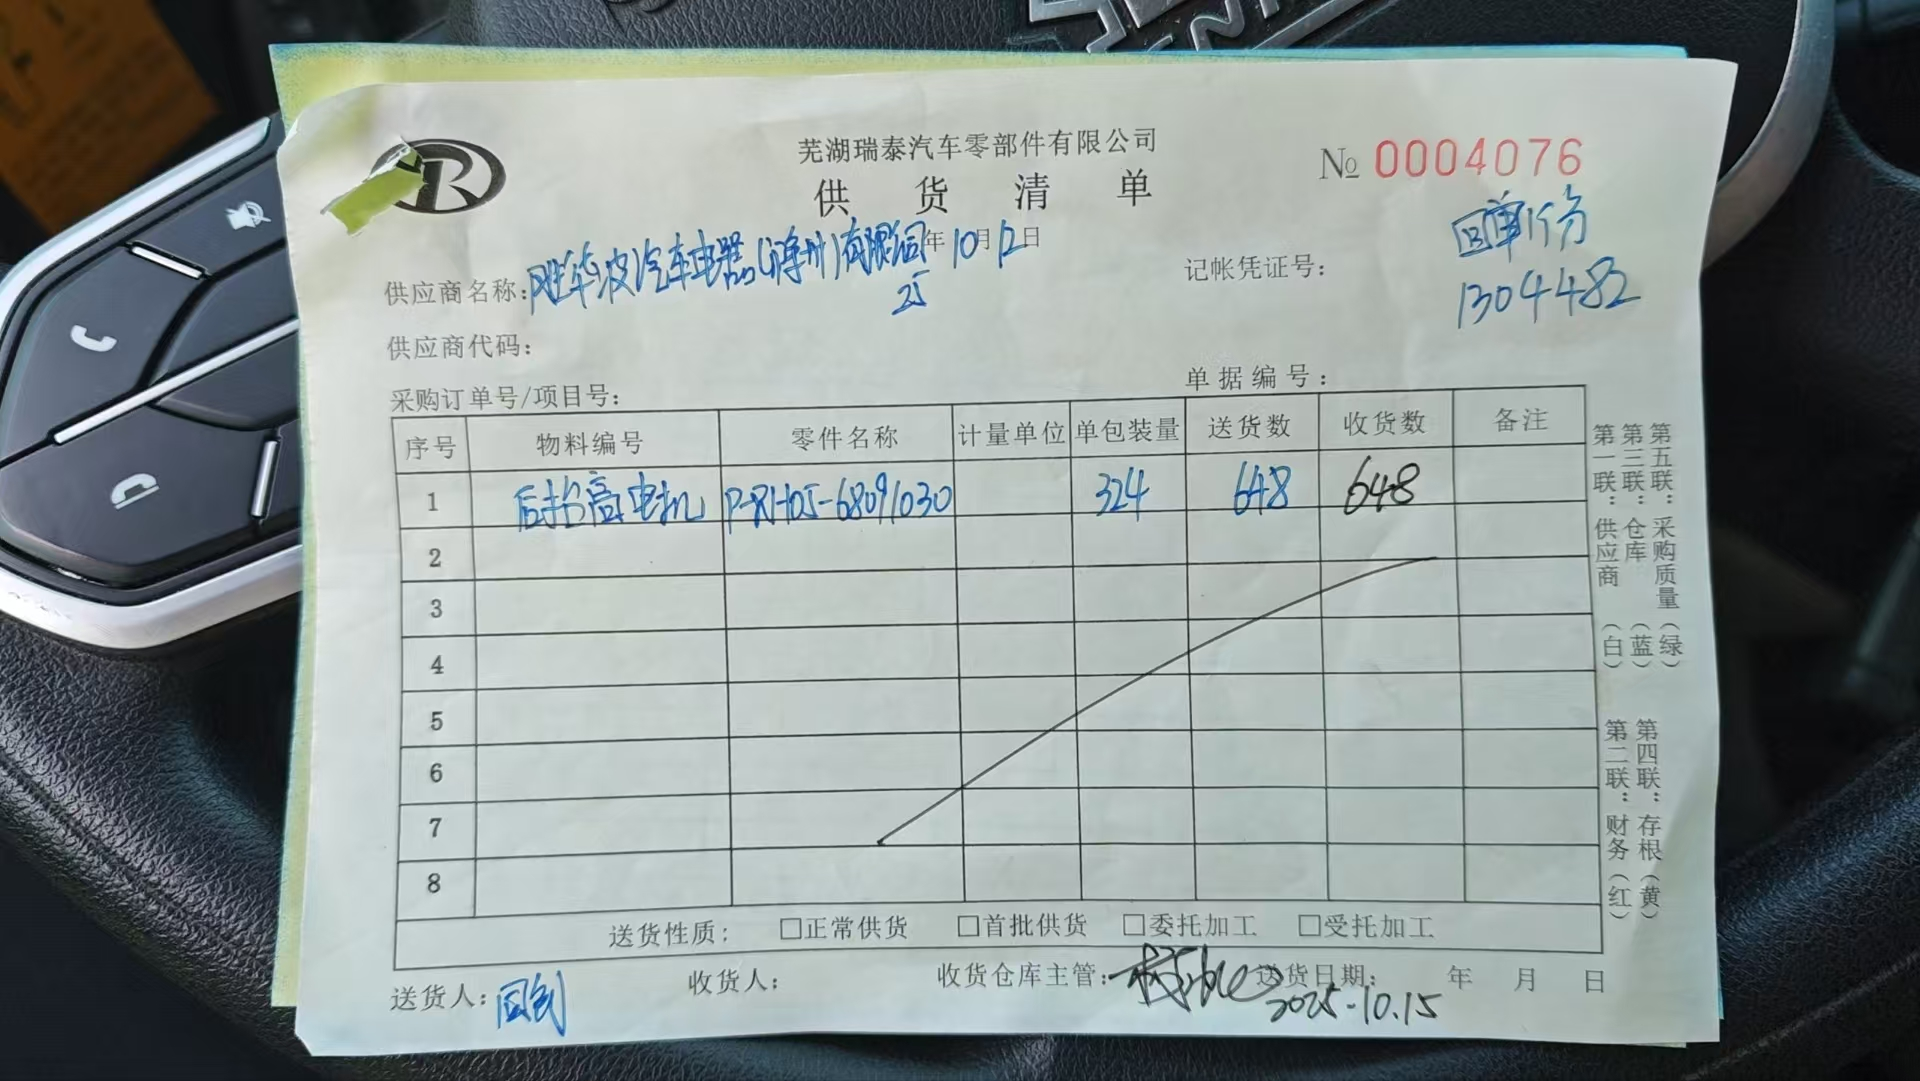 芜湖瑞泰汽车零部件有限公司
供货清单
№ 0004076
回单1份
1304482
25年10月12日
供应商名称: 胜华波汽车电器(滁州)有限公司
记帐凭证号:
供应商代码:
采购订单号/项目号:
单据编号:
序号 物料编号 零件名称 计量单位 单包装量 送货数 收货数 备注
1 后抬高电机 324 648 648
2
3
4
5
6
7
8
送货性质: □正常供货 □首批供货 □委托加工 □受托加工
送货人:
收货人:
收货仓库主管:
送货日期: 年 月 日
2025-10.15
第一联:供应商(白)
第三联:仓库(蓝)
第五联:采购质量(绿)
第二联:财务(红)
第四联:存根(黄)